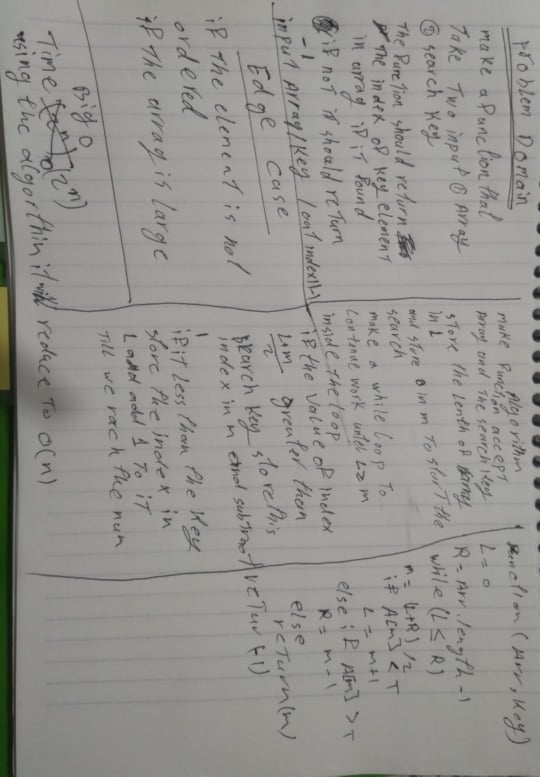 Problem Domain
make a function that
Take Two input ① Array
② search key
The function should return
the index of key element
in array if it found
if not it should return
-1
input Array/key / out index/-1
Edge case
if the element is not
ordered
if the array is large
Big O
Time O(2n)
using the algorithin it will reduce to O(n)
Algorithm
make function accept
Array and the search key
store the lenth of array
in L
and store 0 in m To start the
search
make a while loop to
contenue work until L>m
inside the loop
if the value of index
L+m
2
greater then
search key store this
index in m and subtract
1
if it less than the key
store the index in
L and add 1 To it
till we rach the num
function (Arr, key)
L = 0
R = Arr.length -1
while (L ≤ R)
m = (L+R)/2
if A[m] < T
L = m+1
else if A[m] > T
R = m-1
else
return(m)
return(-1)